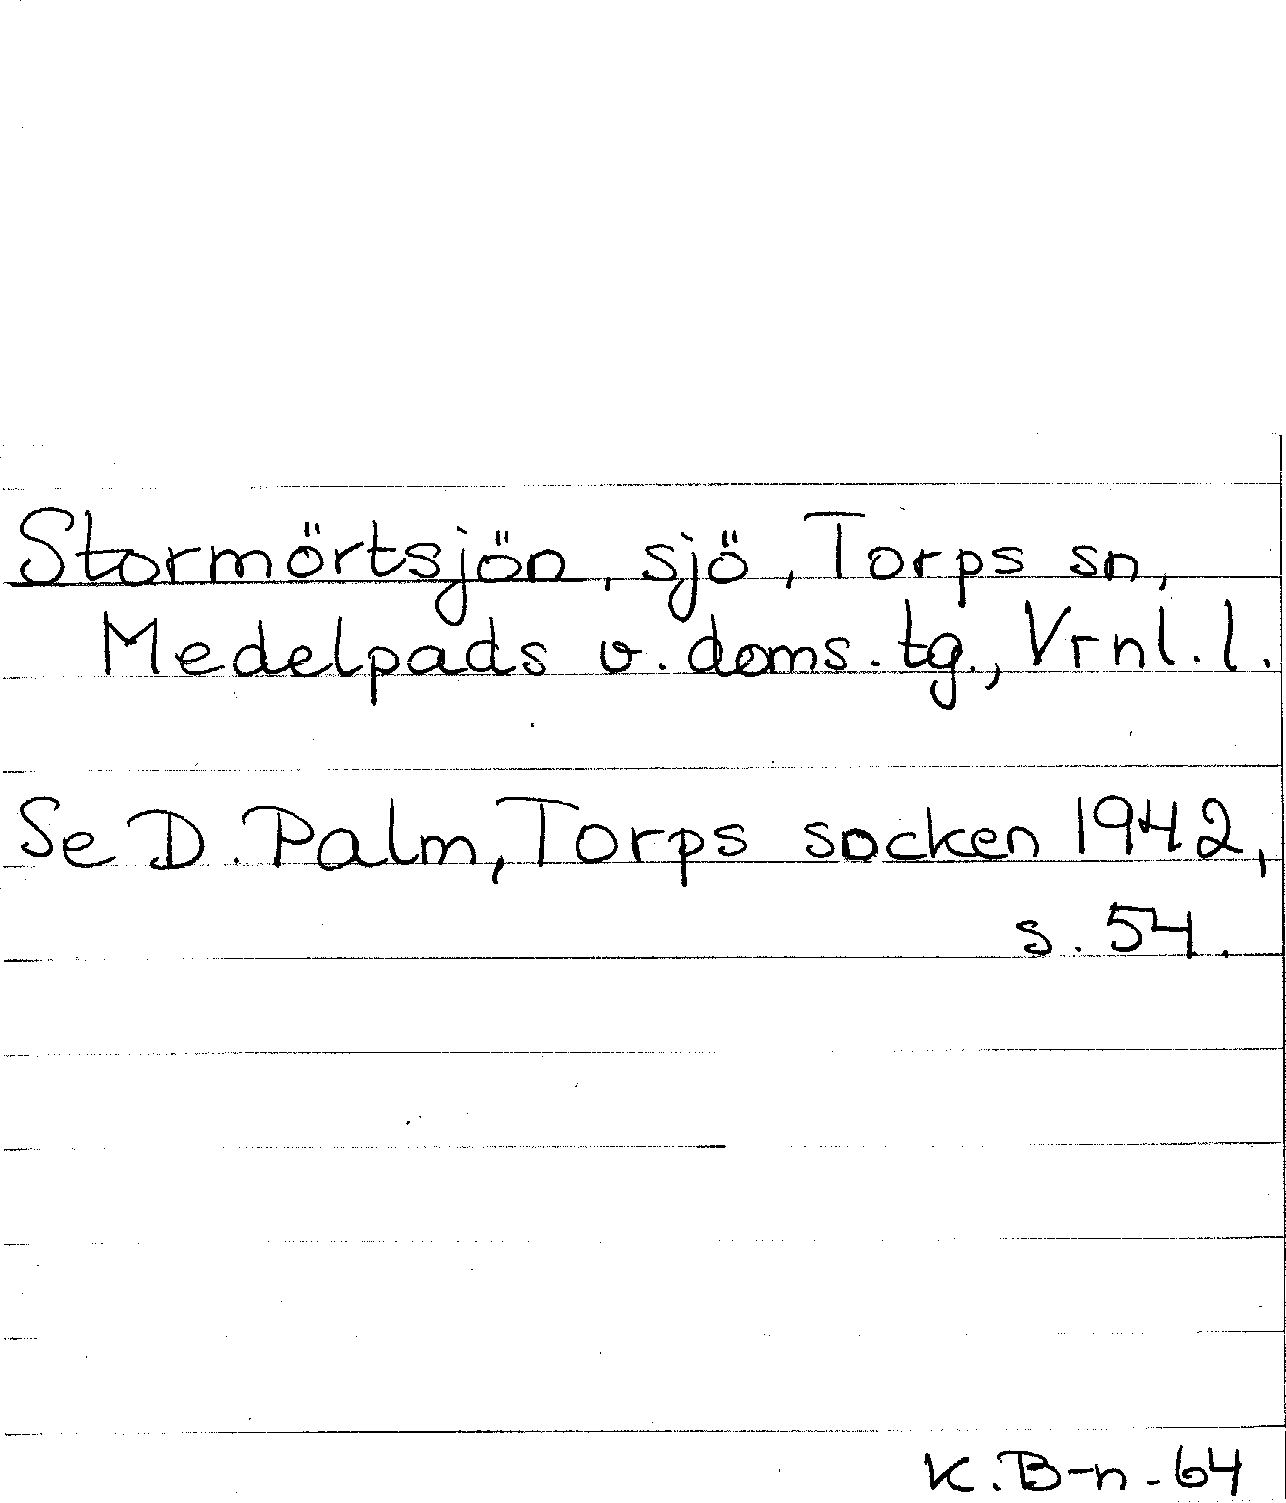 Stormörtsjön, sjö, Torps sn,
Medelpads v. doms. tg., Vrnl. l.
Se D. Palm, Torps socken 1942,
s. 54.
K. B-n - 64